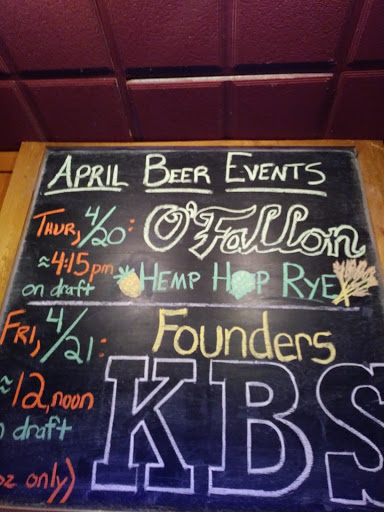 April Beer Events
Thur, 4/20: O'Fallon
≈4:15pm on draft Hemp Hop Rye
Fri, 4/21: Founders
≈12, noon KBS
draft
oz only)